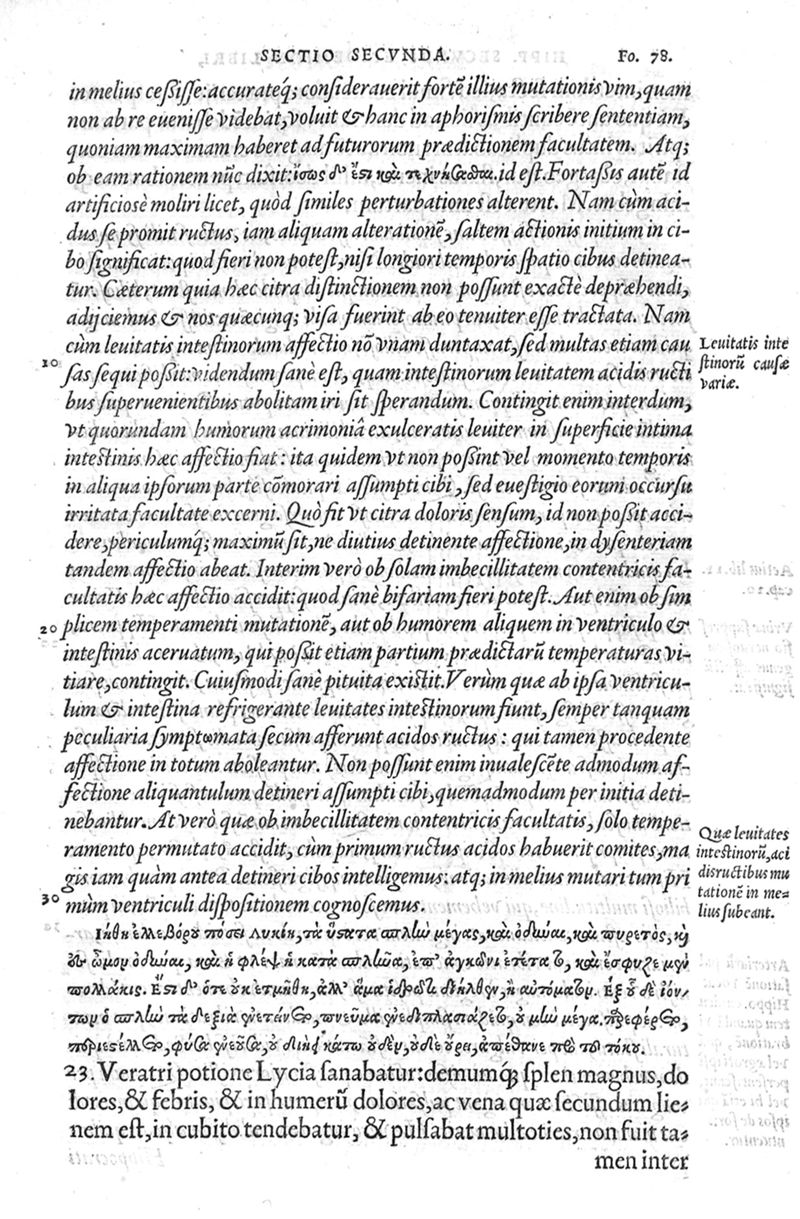 SECTIO SECVNDA. Fo. 78.
in melius ceßisse: accurateq́; considerauerit fortẽ illius mutationis vim, quam
non ab re euenisse videbat, voluit & hanc in aphorismis scribere sententiam,
quoniam maximam haberet ad futurorum prædictionem facultatem. Atq;
ob eam rationem nũc dixit: ἴσως δ' ἔστι καὶ τεχνήσασθαι. id est. Fortaßis autẽ id
artificiosè moliri licet, quòd similes perturbationes alterent. Nam cùm aci-
dus se promit ructus, iam aliquam alterationẽ, saltem actionis initium in ci-
bo significat: quod fieri non potest, nisi longiori temporis spatio cibus detinea-
tur. Cæterum quia hæc citra distinctionem non possunt exactè depræhendi,
adijciemus & nos quæcunq; visa fuerint ab eo tenuiter esse tractata. Nam
cùm leuitatis intestinorum affectio nõ vnam duntaxat, sed multas etiam cau
Leuitatis inte
stinorũ causæ
variæ.
10 sas sequi poßit: videndum sanè est, quam intestinorum leuitatem acidis ructi
bus superuenientibus abolitam iri sit sperandum. Contingit enim interdum,
vt quorundam humorum acrimoniâ exulceratis leuiter in superficie intima
intestinis hæc affectio fiat: ita quidem vt non poßint vel momento temporis
in aliqua ipsorum parte cõmorari assumpti cibi, sed euestigio eorum occursu
irritata facultate excerni. Quò fit vt citra doloris sensum, id non poßit acci-
dere, periculumq́; maximũ sit, ne diutius detinente affectione, in dysenteriam
tandem affectio abeat. Interim verò ob solam imbecillitatem contentricis fa-
cultatis hæc affectio accidit: quod sanè bifariàm fieri potest. Aut enim ob sim
20 plicem temperamenti mutationẽ, aut ob humorem aliquem in ventriculo &
intestinis aceruatum, qui poßit etiam partium prædictarũ temperaturas vi-
tiare, contingit. Cuiusmodi sanè pituita existit. Verùm quæ ab ipsa ventricu-
lum & intestina refrigerante leuitates intestinorum fiunt, semper tanquam
peculiaria symptωmata secum afferunt acidos ructus: qui tamen procedente
affectione in totum aboleantur. Non possunt enim inualescẽte admodum af-
fectione aliquantulum detineri assumpti cibi, quemadmodum per initia deti-
nebantur. At verò quæ ob imbecillitatem contentricis facultatis, solo tempe-
ramento permutato accidit, cùm primum ructus acidos habuerit comites, ma
gis iam quàm antea detineri cibos intelligemus: atq; in melius mutari tum pri
30 mùm ventriculi dispositionem cognoscemus.
Quæ leuitates
intestinorũ, aci
dis ructibus mu
tationẽ in me=
lius subeant.
Ἰήθη ἐλλεβόρου πόσει Λυκίη, τὰ ὕστατα σπλὼ μέγας, καὶ ὀδύναι, καὶ πυρετὸς, καὶ
ἐς ὦμον ὀδύναι, καὶ ἡ φλὲψ ἡ κατὰ σπλῶα, ἐπ' ἀγκῶνι ἐτέτατο, καὶ ἔσφυζε μὲν
πολλάκις. Ἔστι δ' ὅτε οὐκ ἐτμήθη, ἀλλ' ἅμα ἱδρῶτι διῆλθεν, ἢ αὐτόματον. Ἐξ οὗ δὲ ἰόν-
των ὁ σπλὼ τὰ δεξιὰ ἐνετείνετο, πνεῦμα ἐνεδιπλασιάζετο, οὐ μὼ μέγα. παρεφέρετο,
περιεστέλλετο, φῦσα ἐνεοῦσα, οὐ διῄει κάτω οὐδὲν, οὐδὲ οὔρει, ἀπέθανε πρὸ τοῦ τόκου.
23. Veratri potione Lycia sanabatur: demumq́ꝫ splen magnus, do
lores, & febris, & in humerũ dolores, ac vena quæ secundum lie=
nem est, in cubito tendebatur, & pulsabat multoties, non fuit ta=
men inter